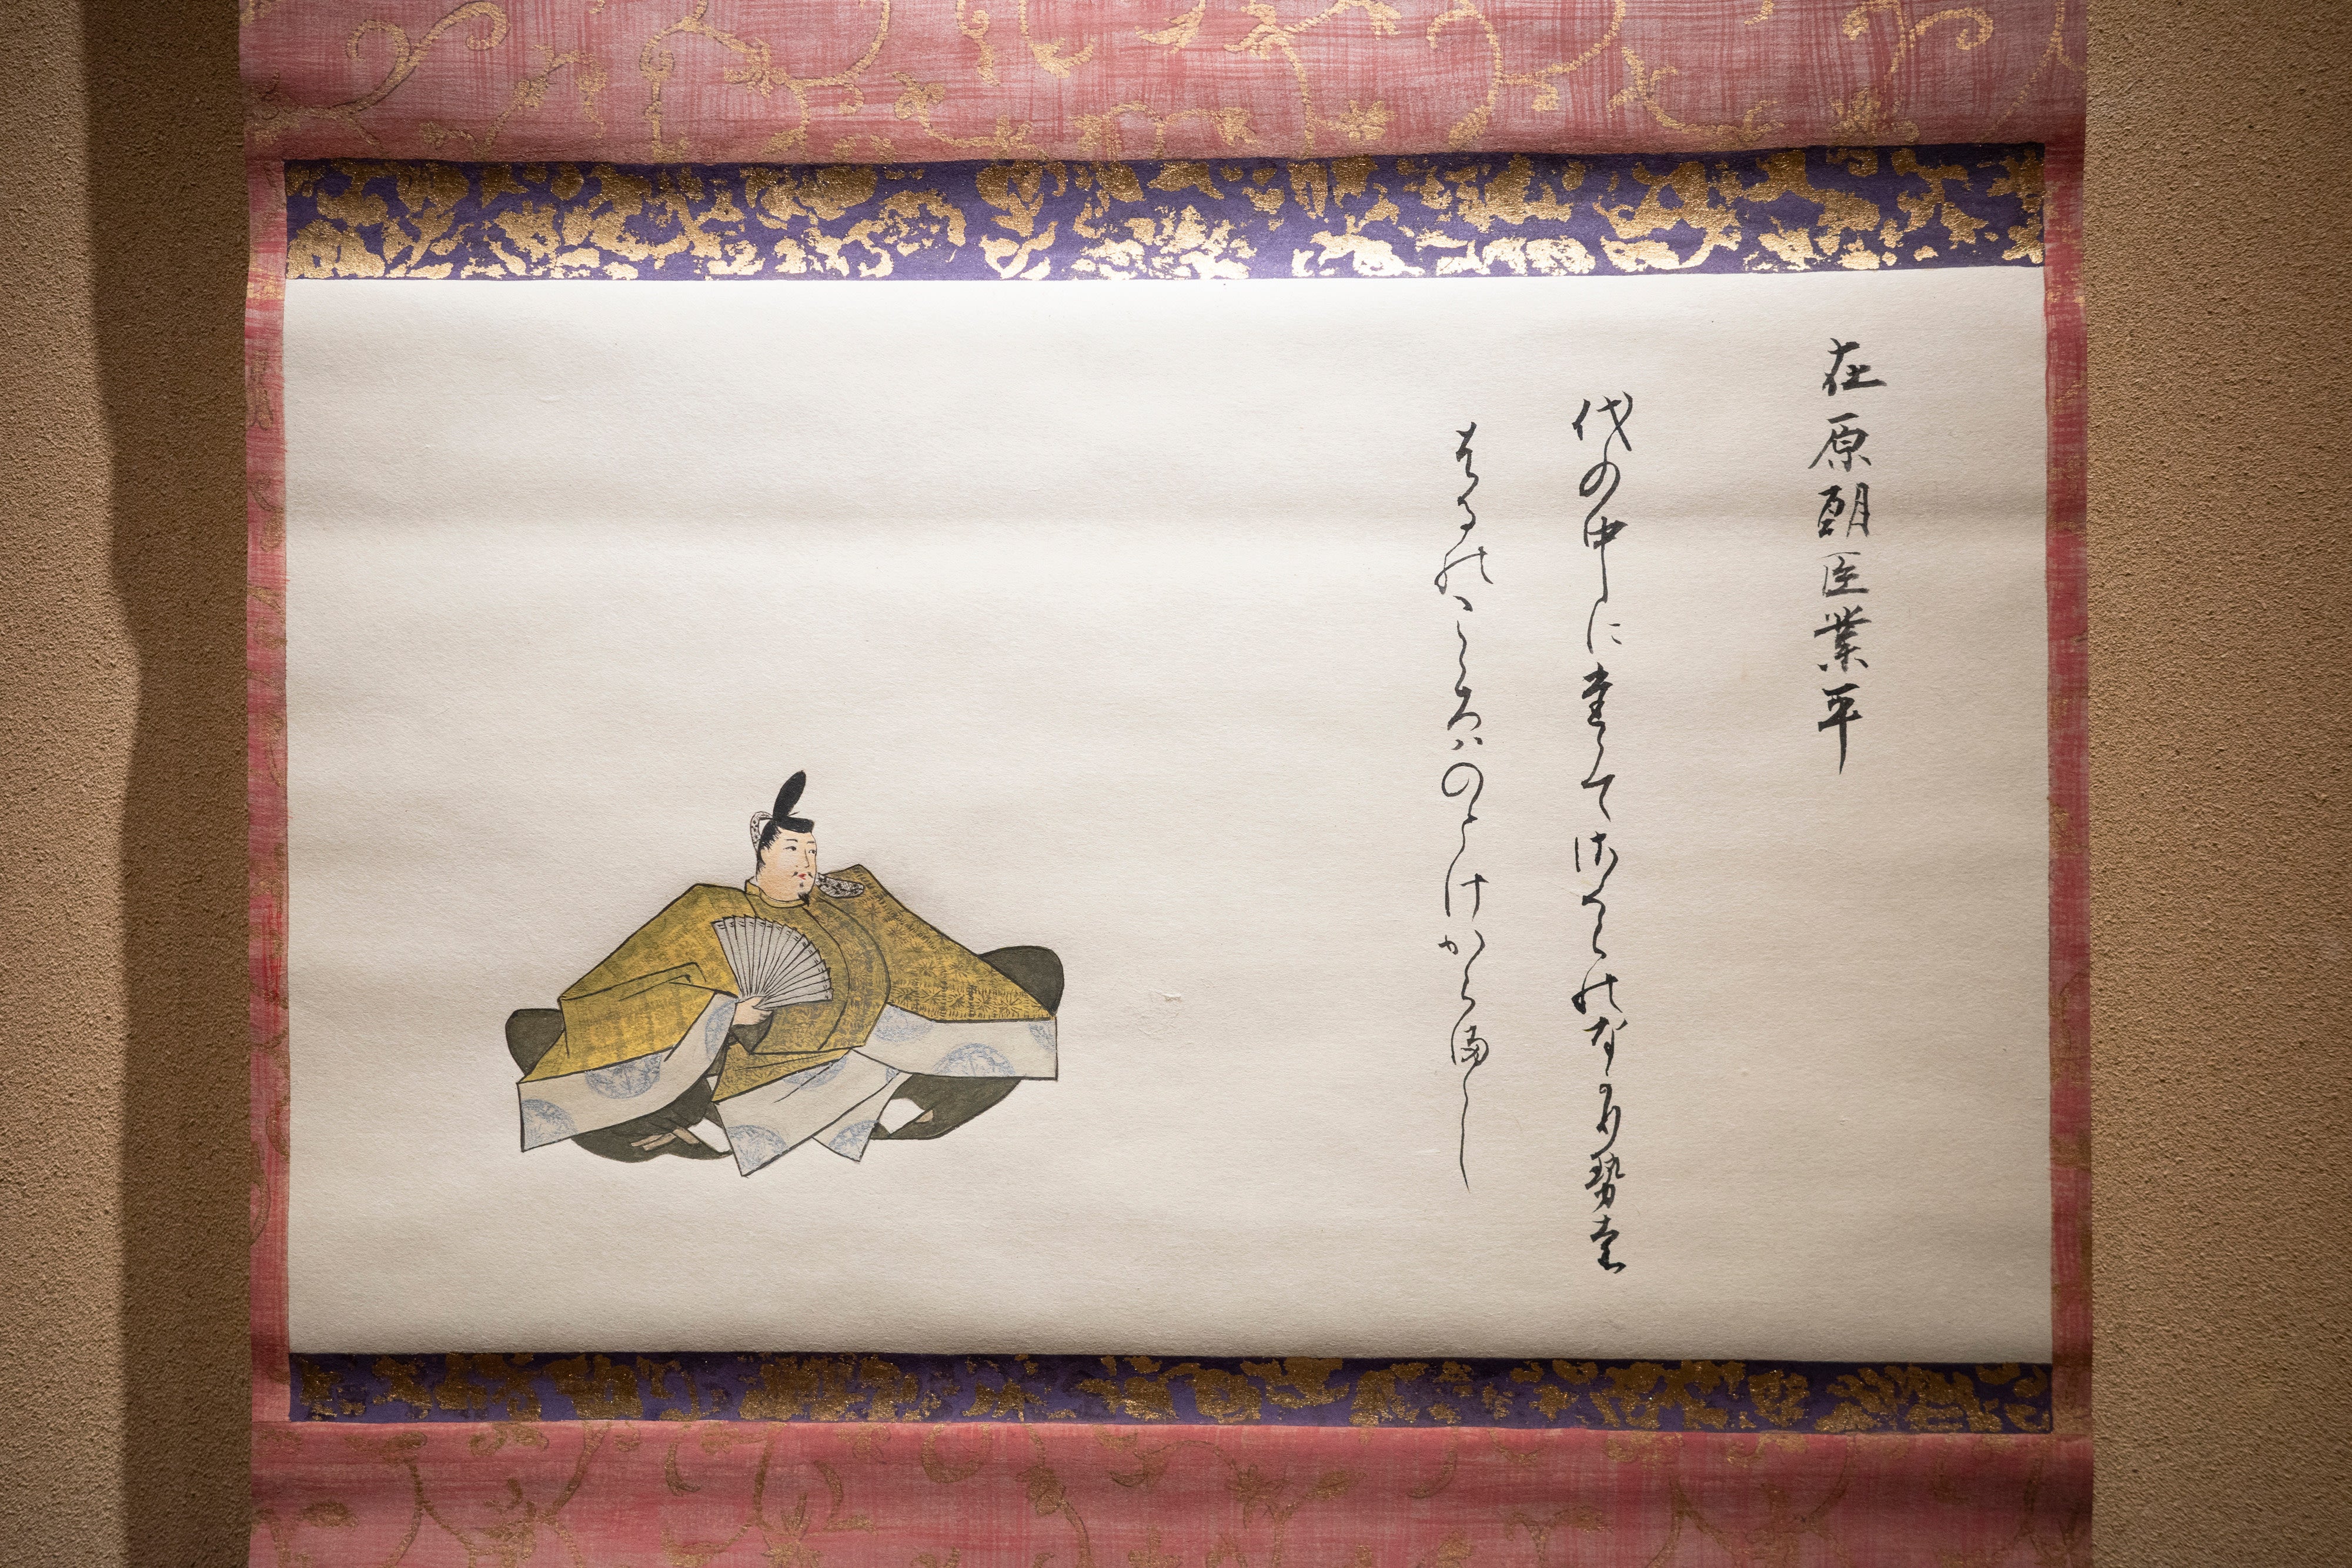 在原朝臣業平
代の中にたえてさくらのなかりせは
はるのこゝろハのとけからまし